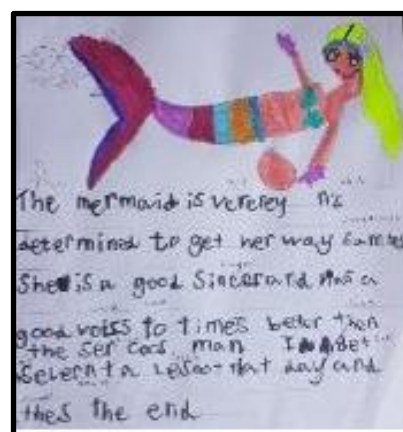 The mermaid is vererey
determined to get her way
She is a good Sincer and has a
good voiss to times beter then
the ser cacs man I
a lesoo that day and
thes the end